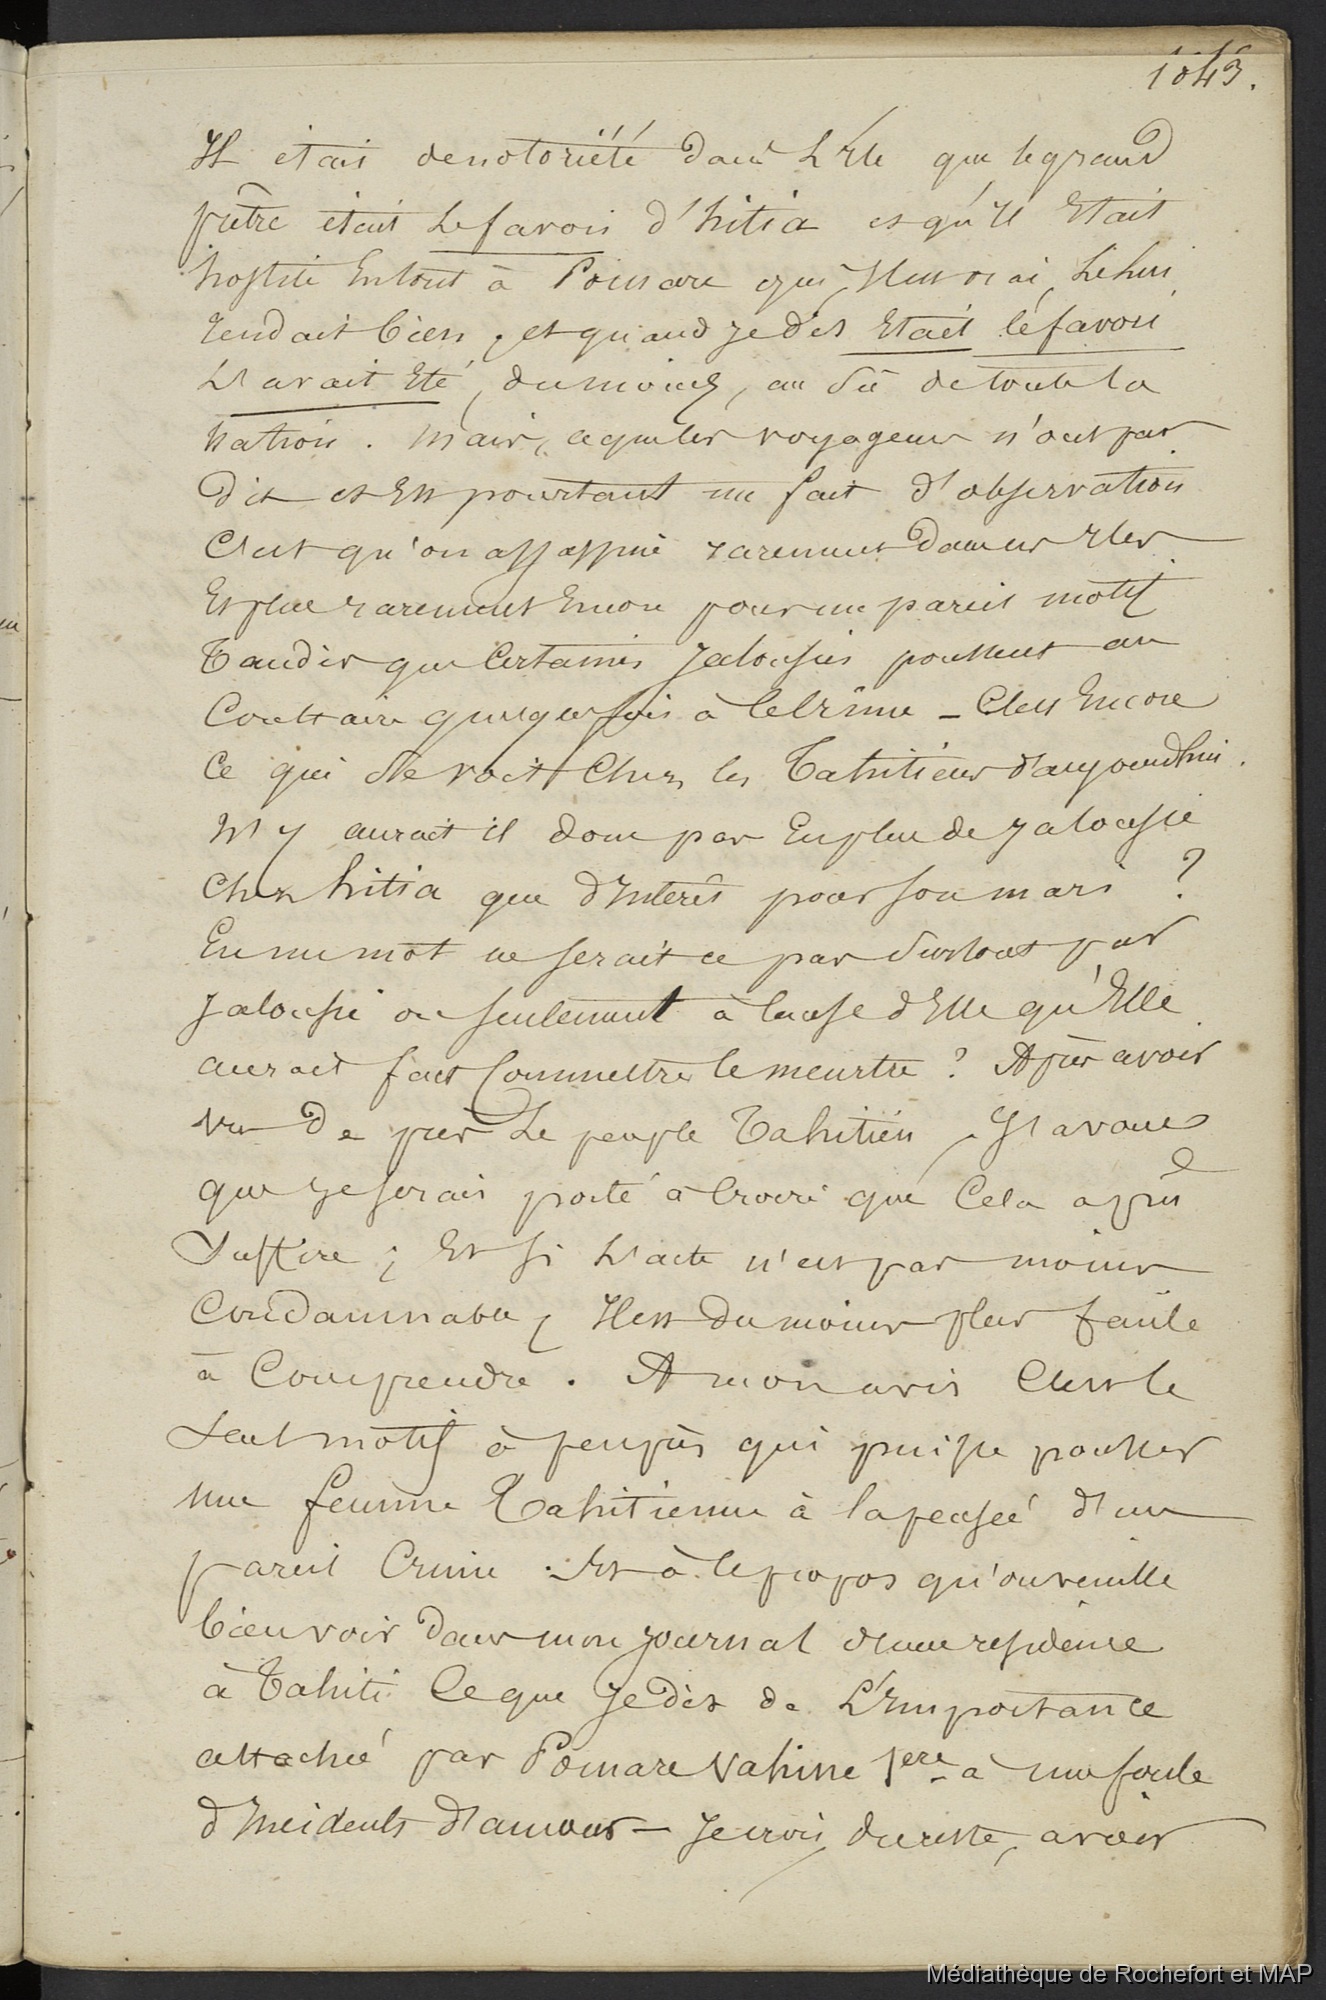 1043.
Il était de notoriété dans L'Ile que le grand
prêtre était Le favori d'hitia et qu'Il Etait
hostile En tout à Pomare qui, Il est vrai, Le lui
rendait bien, et quand Je dis Etait le favori
L'avait Eté, du moins, au Sû de toute la
Nation. Mais, ce que les voyageurs n'ont pas
Dit et Est pourtant un fait d'observation
C'est qu'on assassine rarement Dans ces Iles
Et plus rarement Encore pour un pareil motif
Tandis que Certaines Jalousies poussent au
Contraire quelquefois à le Crime - C'est Encore
Ce qui Se voit Chez les Tahitiens d'aujourdhui.
N'y aurait il donc pas En plus de Jalousie
Chez hitia que d'Interêt pour son mari ?
En un mot ne serait ce pas Surtout par
Jalousie ou seulement à Cause d'Elle qu'Elle
aurait fait Commettre le meurtre ? Après avoir
vu De près Le peuple Tahitien, J'avoue
que Je serais porté à Croire que Cela a pu
Suffire ; Et Si L'acte n'est pas moins
Condamnable, Il est Du moins plus facile
à Comprendre. A mon avis C'est le
Seul motif à peu près qui puisse pousser
une femme Tahitienne à la pensée d'un
pareil Crime. Et à le propos qu'on veuille
bien voir Dans mon Journal d'une residence
à Tahiti Ce que Je Dis de L'Importance
attachée par Pomare Vahine 1ere à une foule
d'Incidents d'amour - Je crois, du reste, avoir
Médiathèque de Rochefort et MAP